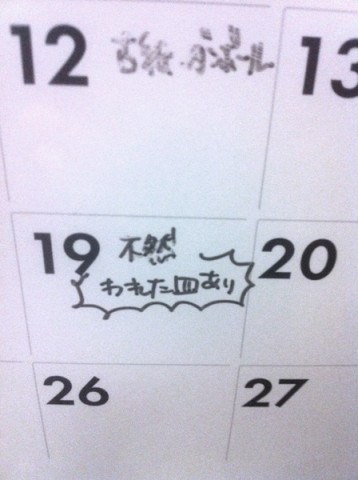 12 古紙・ダンボール
13
19 不燃
われた皿あり
20
26
27